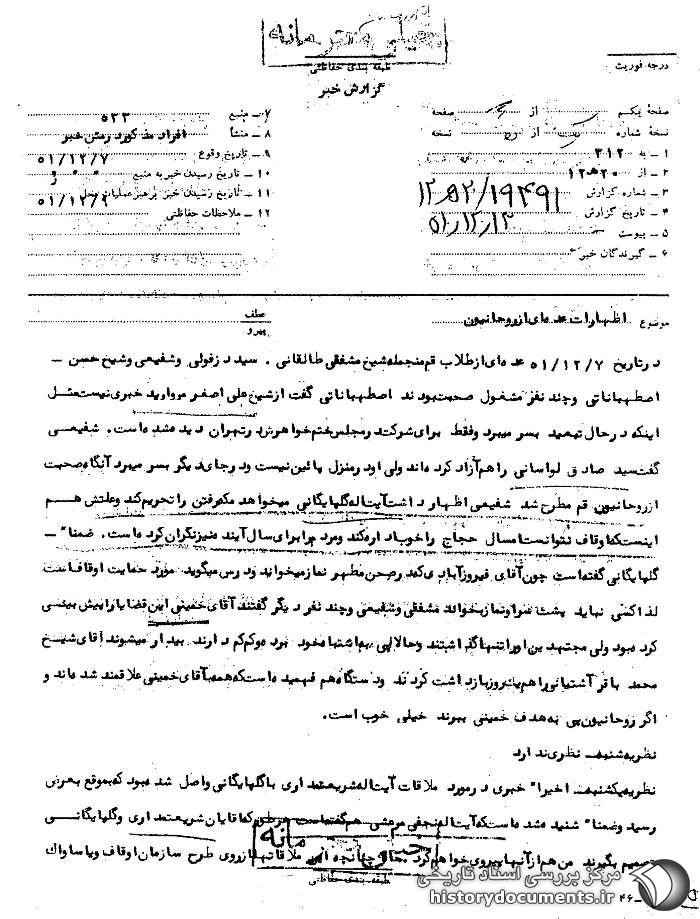 خیلی محرمانه
طبقه بندی حفاظتی
گزارش خبر
درجه فوریت
صفحهٔ یکم از صفحه
نسخهٔ شماره از نسخه
۱ ـ به ۳۱۲
۲ ـ از ۱۲ ه ۲۰
۳ ـ شماره گزارش
۴ ـ تاریخ گزارش ۵۱/۱۲/۱۳
۵ ـ پیوست
۶ ـ گیرندگان خبر
۷ ـ منبع ۵۳۳
۸ ـ منشأ افراد مذکور در متن خبر
۹ ـ تاریخ وقوع ۵۱/۱۲/۷
۱۰ ـ تاریخ رسیدن خبر به منبع
۱۱ ـ تاریخ رسیدن خبر برهبر عملیات محلی ۵۱/۱۲/۹
۱۲ ـ ملاحظات حفاظتی
موضوع اظهارات عده‌ای از روحانیون
عطف
پیرو
در تاریخ ۵۱/۱۲/۷ عده‌ای از طلاب قم منجمله شیخ مشفقی طالقانی . سید دزفولی و شفیعی و شیخ حسن ـ
اصطهباناتی و چند نفر مشغول صحبت بودند اصطهباناتی گفت از شیخ علی اصغر مروارید خبری نیست مثل
اینکه در حال تبعید بسر میبرد وفقط برای شرکت در مجلس ختم خواهرش در تهران دیده شده است. شفیعی
گفت سید صادق لواسانی را هم آزاد کرده‌اند ولی او در منزل پائین نیست و در جای دیگر بسر میبرد آنگاه صحبت
از روحانیون قم مطرح شد شفیعی اظهار داشت آیت‌اله گلپایگانی میخواهد مکه رفتن را تحریم کند و علتش هم
اینست که اوقاف نتوانست امسال حجاج را خوب اداره کند و مردم را برای سال آینده نیز نگران کرده است. ضمنا" ـ
گلپایگانی گفته است چون آقای فیروزآبادی که در صحن مطهر نماز میخواند و درس میگوید مورد حمایت اوقاف است
لذا کسی نباید پشت سر او نماز بخواند مشفقی و شفیعی و چند نفر دیگر گفتند آقای خمینی این قضایا را پیش بینی
کرده بود ولی مجتهدین او را تنها گذاشتند و حالا پی به اشتباه خود برده و کم کم دارند بیدار میشوند آقای شیخ
محمد باقر آشتیانی را هم پانزده روز بازداشت کردند و دستگاه هم فهمیده است که همه به آقای خمینی علاقمند شده‌اند و
اگر روحانیون پی به هدف خمینی ببرند خیلی خوب است.
نظریه شنبه. نظری ندارد
نظریه یکشنبه. اخیرا" خبری در مورد ملاقات آیت‌اله شریعتمداری با گلپایگانی واصل شده بود که بموقع بعرض
رسید و ضمنا" شنیده شده است که آیت‌اله نجفی مرعشی هم گفته است هر که آقایان شریعتمداری و گلپایگانی
تصمیم بگیرند من هم از آنها پیروی خواهم کرد و چنانچه این ملاقاتها از روی طرح سازمان اوقاف و یا ساواک
طبقه بندی حفاظتی
مرکز بررسی اسناد تاریخی
historydocuments.ir